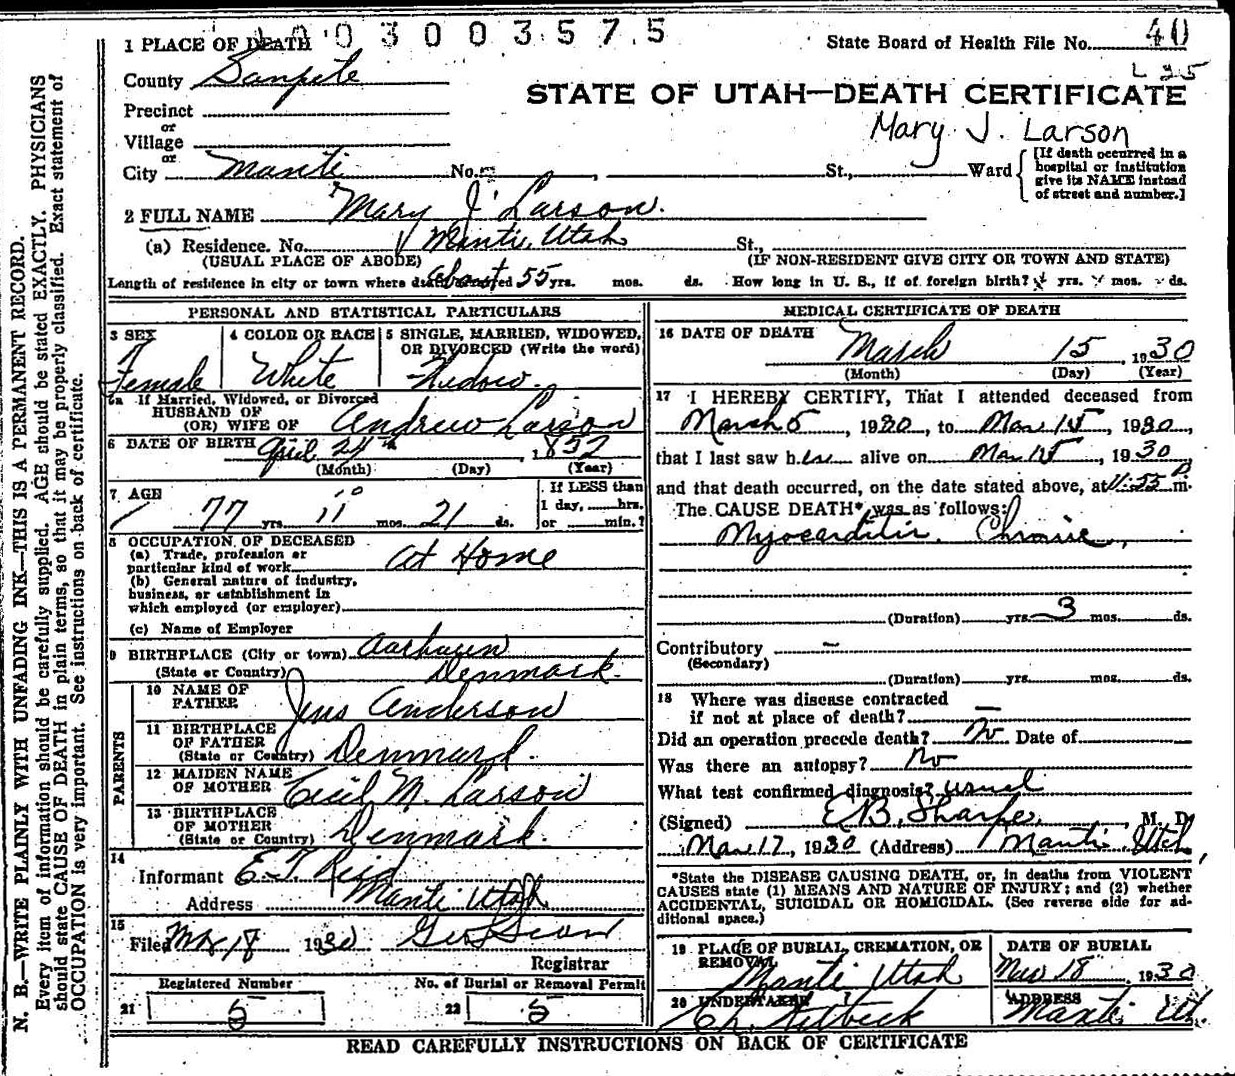 1003003575
1 PLACE OF DEATH
State Board of Health File No. 40
L 25
County Sanpete
STATE OF UTAH—DEATH CERTIFICATE
Precinct
or
Mary J. Larson
Village
or
City Manti No. , St., Ward
[If death occurred in a
hospital or institution
give its NAME instead
of street and number.]
2 FULL NAME Mary J. Larson.
(a) Residence. No. Manti, Utah St.,
(USUAL PLACE OF ABODE) (IF NON-RESIDENT GIVE CITY OR TOWN AND STATE)
Length of residence in city or town where death occurred about 55 yrs. mos. ds. How long in U. S., if of foreign birth? yrs. mos. ds.
PERSONAL AND STATISTICAL PARTICULARS
3 SEX
Female
4 COLOR OR RACE
White
5 SINGLE, MARRIED, WIDOWED,
OR DIVORCED (Write the word)
Widow.
5a If Married, Widowed, or Divorced
HUSBAND OF
(OR) WIFE OF Andrew Larson
6 DATE OF BIRTH April 24th, 1852
(Month) (Day) (Year)
7 AGE
77 yrs. 11 10 mos. 21 ds.
If LESS than
1 day, hrs.
or min.?
8 OCCUPATION OF DECEASED
(a) Trade, profession or
particular kind of work At Home
(b) General nature of industry,
business, or establishment in
which employed (or employer)
(c) Name of Employer
9 BIRTHPLACE (City or town) Aarhuun
(State or Country) Denmark.
PARENTS
10 NAME OF
FATHER Jens Anderson
11 BIRTHPLACE
OF FATHER
(State or Country) Denmark.
12 MAIDEN NAME
OF MOTHER Cecil M. Larson
13 BIRTHPLACE
OF MOTHER
(State or Country) Denmark.
14
Informant E. T. Reid
Address Manti Utah
15
Filed Mar 18 1930
Registrar
Registered Number
21 5
No. of Burial or Removal Permit
22 5
MEDICAL CERTIFICATE OF DEATH
16 DATE OF DEATH
March 15 1930
(Month) (Day) (Year)
17 I HEREBY CERTIFY, That I attended deceased from
March 5, 1930, to Mar 15, 1930,
that I last saw her alive on Mar 15, 1930
and that death occurred, on the date stated above, at 11:55 P m.
The CAUSE DEATH* was as follows:
Myocarditis, Chronic,
(Duration) yrs. 3 mos. ds.
Contributory –
(Secondary)
(Duration) yrs. mos. ds.
18 Where was disease contracted
if not at place of death? —
Did an operation precede death? No Date of
Was there an autopsy? No
What test confirmed diagnosis? usual
(Signed) E.B. Sharpe, M. D.
Mar 17, 1930 (Address) Manti, Utah,
*State the DISEASE CAUSING DEATH, or, in deaths from VIOLENT
CAUSES state (1) MEANS AND NATURE OF INJURY; and (2) whether
ACCIDENTAL, SUICIDAL OR HOMICIDAL. (See reverse side for ad-
ditional space.)
19 PLACE OF BURIAL, CREMATION, OR
REMOVAL
Manti Utah
DATE OF BURIAL
Mar 18 1930
20 UNDERTAKER
ADDRESS
Manti Ut.
READ CAREFULLY INSTRUCTIONS ON BACK OF CERTIFICATE
N. B.—WRITE PLAINLY WITH UNFADING INK—THIS IS A PERMANENT RECORD.
Every item of information should be carefully supplied. AGE should be stated EXACTLY. PHYSICIANS
should state CAUSE OF DEATH in plain terms, so that it may be properly classified. Exact statement of
OCCUPATION is very important. See instructions on back of certificate.